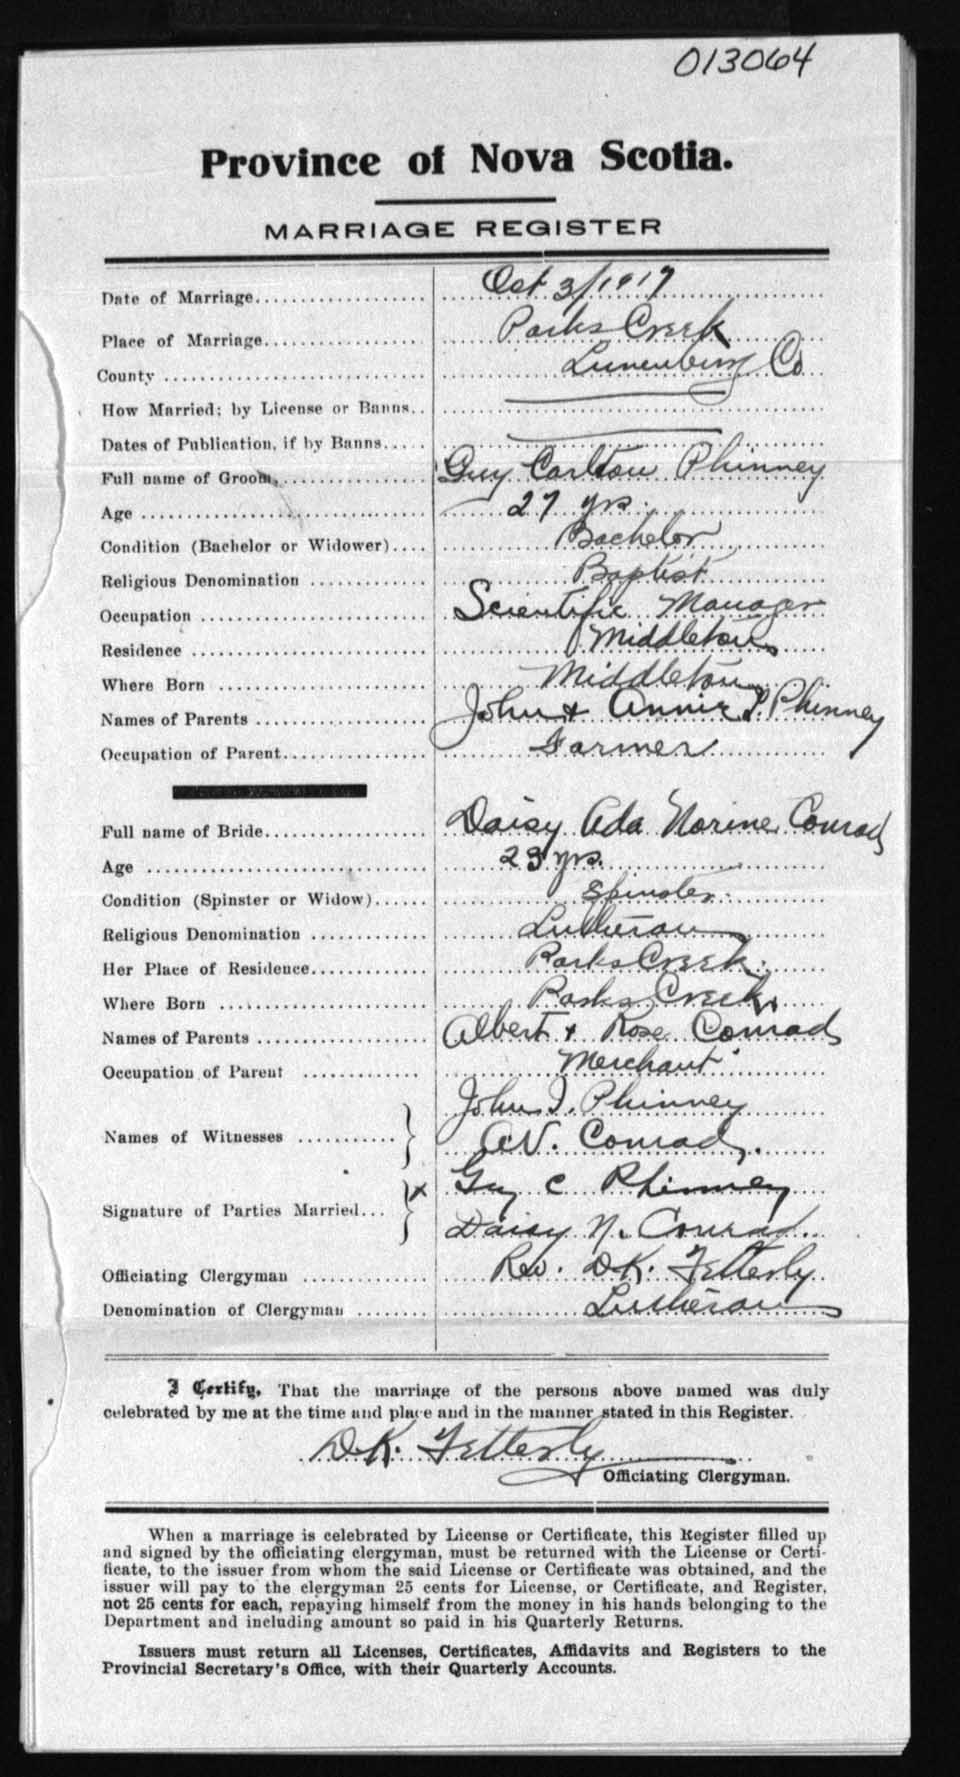 013064
Province of Nova Scotia.
MARRIAGE REGISTER
Date of Marriage Oct 3/1917
Place of Marriage Parks Creek
County Lunenburg Co
How Married; by License or Banns
Dates of Publication, if by Banns
Full name of Groom, Guy Carlton Phinney
Age 27 yrs.
Condition (Bachelor or Widower) Bachelor
Religious Denomination Baptist
Occupation Scientific Manager
Residence Middleton
Where Born Middleton
Names of Parents John & Annie Phinney
Occupation of Parent Farmer
Full name of Bride Daisy Ada Norine Conrad
Age 23 yrs.
Condition (Spinster or Widow) Spinster
Religious Denomination Lutheran
Her Place of Residence Parks Creek
Where Born Parks Creek
Names of Parents Albert & Rose Conrad
Occupation of Parent Merchant
John I. Phinney
Names of Witnesses A.V. Conrad
x Guy C Phinney
Signature of Parties Married Daisy N. Conrad
Officiating Clergyman Rev. D.K. Fetterly
Denomination of Clergyman Lutheran
I Certify, That the marriage of the persons above named was duly
celebrated by me at the time and place and in the manner stated in this Register.
D.K. Fetterly
Officiating Clergyman.
When a marriage is celebrated by License or Certificate, this Register filled up
and signed by the officiating clergyman, must be returned with the License or Certi-
ficate, to the issuer from whom the said License or Certificate was obtained, and the
issuer will pay to the clergyman 25 cents for License, or Certificate, and Register,
not 25 cents for each, repaying himself from the money in his hands belonging to the
Department and including amount so paid in his Quarterly Returns.
Issuers must return all Licenses, Certificates, Affidavits and Registers to the
Provincial Secretary's Office, with their Quarterly Accounts.